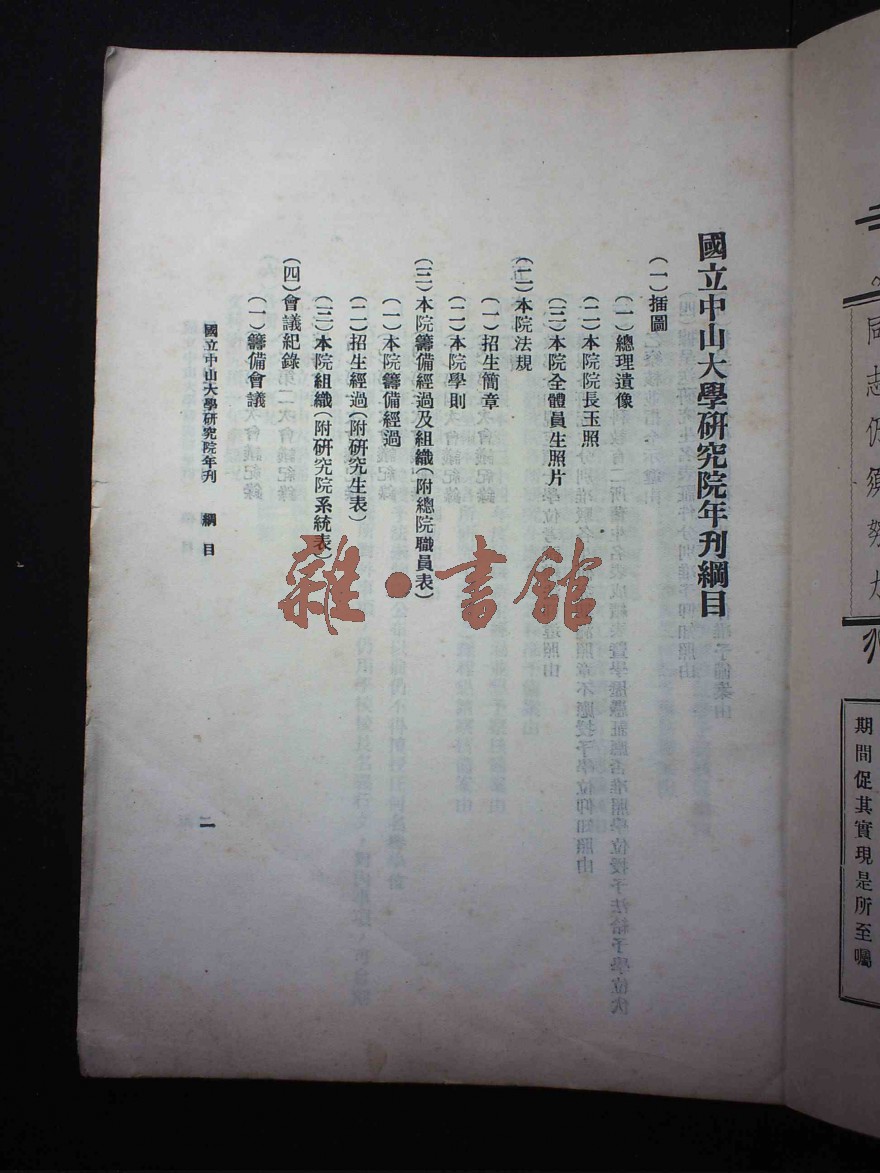 國立中山大學研究院年刊綱目
(一)插圖
(一)總理遺像
(二)本院院長玉照
(三)本院全體員生照片
(二)本院法規
(一)招生簡章
(二)本院學則
(三)本院籌備經過及組織(附總院職員表)
(一)本院籌備經過
(二)招生經過(附研究生表)
(三)本院組織(附研究院系統表)
(四)會議紀錄
(一)籌備會議
國立中山大學研究院年刊 綱目
二
雜·書館
同志仍須努力
期間促其實現是所至囑